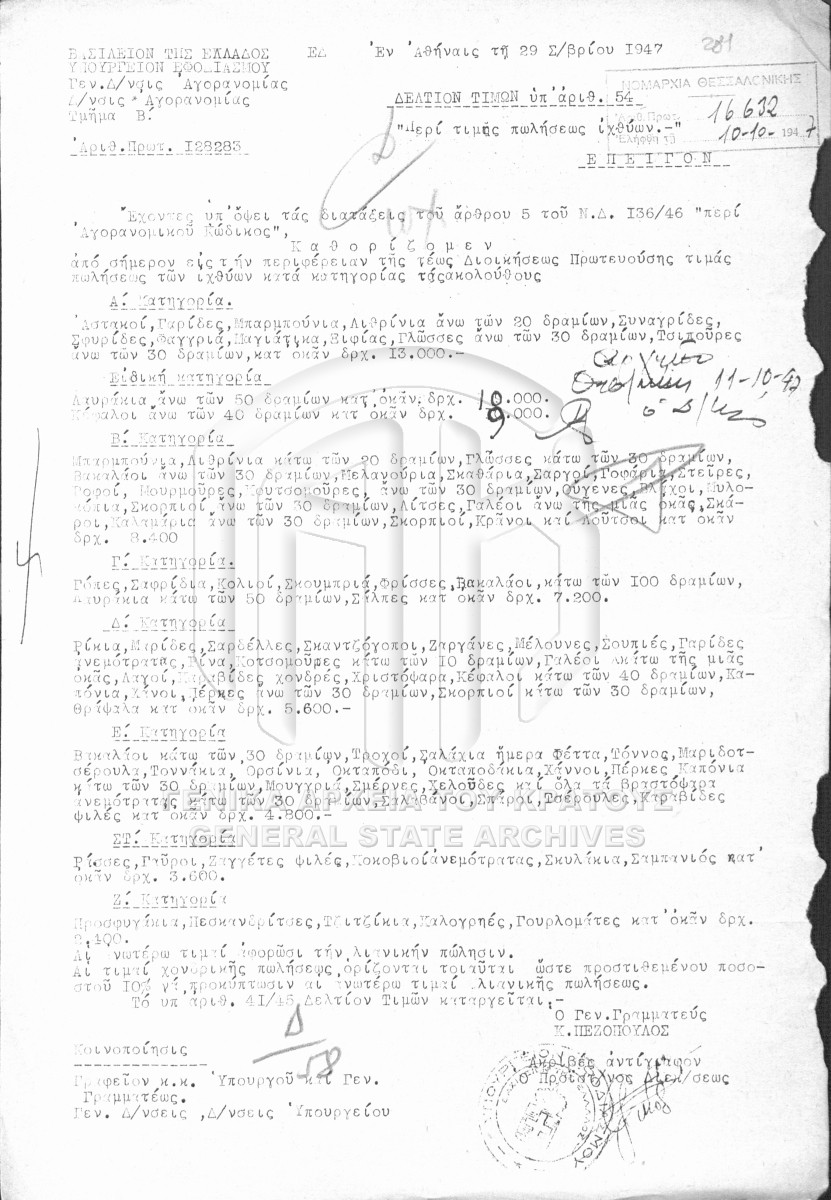 281
ΒΑΣΙΛΕΙΟΝ ΤΗΣ ΕΛΛΑΔΟΣ ΕΔ Ἐν Ἀθήναις τῇ 29 Σ/βρίου 1947
ΥΠΟΥΡΓΕΙΟΝ ΕΦΟΔΙΑΣΜΟΥ
Γεν.Δ/νσις Ἀγορανομίας
Δ/νσις Ἀγορανομίας
Τμῆμα Β.
Ἀριθ.Πρωτ. I28283
ΝΟΜΑΡΧΙΑ ΘΕΣΣΑΛΟΝΙΚΗΣ
Ἀριθ.Πρωτ. 16632
Ἐλήφθη τῇ 10-10- 1947
ΔΕΛΤΙΟΝ ΤΙΜΩΝ ὑπ'ἀριθ. 54
"Περί τιμῆς πωλήσεως ἰχθύων.-"
Ε Π Ε Ι Γ Ο Ν
Ἔχοντες ὑπ'ὄψει τάς διατάξεις τοῦ ἄρθρου 5 τοῦ Ν.Δ. I36/46 "περί
Ἀγορανομικοῦ Κώδικος",
Κ α θ ο ρ ί ζ ο μ ε ν
ἀπό σήμερον εἰς τήν περιφέρειαν τῆς τέως Διοικήσεως Πρωτευούσης τιμάς
πωλήσεως τῶν ἰχθύων κατά κατηγορίας τάςἀκολούθους
Α. Κατηγορία.
Ἀστακοί,Γαρίδες,Μπαρμπούνια,Λιθρίνια ἄνω τῶν 20 δραμίων,Συναγρίδες,
Σφυρίδες,Φαγγριά,Μαγιάτικα,Ξιφίας,Γλῶσσες ἄνω τῶν 30 δραμίων,Τσιποῦρες
ἄνω τῶν 30 δραμίων,κατ ὀκᾶν δρχ. 13.000.-
Εἰδική κατηγορία
Λαυράκια ἄνω τῶν 50 δραμίων κατ'ὀκᾶν δρχ. 10.000.
Κέφαλοι ἄνω τῶν 40 δραμίων κατ ὀκᾶν δρχ. 9.000.
11-10-47
Β. Κατηγορία
Μπαρμπούνια,Λιθρίνια κάτω τῶν 20 δραμίων,Γλῶσσες κάτω τῶν 30 δραμίων,
Βακαλάοι ἄνω τῶν 30 δραμίων,Μελανούρια,Σκαθάρια,Σαργοί,Γοφάρια,Στεῖρες,
Ροφοί, Μουρμοῦρες,Κουτσομοῦρες, ἄνω τῶν 30 δραμίων,Οὔγενες,Βλάχοι,Μυλο-
κόπια,Σκορπιοί ἄνω τῶν 30 δραμίων,Λίτσες,Γαλέοι ἄνω τῆς μιᾶς ὀκᾶς,Σκά-
ροι,Καλαμάρια ἄνω τῶν 30 δραμίων,Σκορπιοί,Κρᾶνοι καί Λοῦτσοι κατ ὀκᾶν
δρχ. 8.400
Γ. Κατηγορία.
Γόπες,Σαφρίδια,Κολιοί,Σκουμπριά,Φρίσσες,Βακαλάοι,κάτω τῶν 100 δραμίων,
Λαυράκια κάτω τῶν 50 δραμίων,Σάλπες κατ ὀκᾶν δρχ. 7.200.
Δ. Κατηγορία
Ρίκια,Μαρίδες,Σαρδέλλες,Σκαντζόγοποι,Ζαργάνες,Μέλουνες,Σουπιές,Γαρίδες
ἀνεμότρατας,Ρίνα,Κοτσομοῦρες κάτω τῶν IO δραμίων,Γαλέοι κάτω τῆς μιᾶς
ὀκᾶς,Λαγοί,Καραβίδες χονδρές,Χριστόψαρα,Κέφαλοι κάτω τῶν 40 δραμίων,Κα-
πόνια,Χάνοι,Πέρκες ἄνω τῶν 30 δραμίων,Σκορπιοί κάτω τῶν 30 δραμίων,
Θράψαλα κατ ὀκᾶν δρχ. 5.600.-
Ε. Κατηγορία
Βακαλάοι κάτω τῶν 30 δραμίων,Τροχοί,Σαλάχια ἥμερα Φέττα,Τόννος,Μαριδοτ-
σέρουλα,Τοννάκια, Ορσίνια, Οκταπόδι, Οκταποδάκια,Χάννοι,Πέρκες Καπόνια
κάτω τῶν 30 δραμίων,Μουγγριά,Σμέρνες,Χελοῦδες καί ὅλα τά βραστόψαρα
ἀνεμότρατας κάτω τῶν 30 δραμίων,Σαλαβάνοι,Σπάροι,Τσέρουλες,Καραβίδες
ψιλές κατ ὀκᾶν δρχ. 4.800.-
ΓΕΝΙΚΑ ΑΡΧΕΙΑ ΤΟΥ ΚΡΑΤΟΥΣ
GENERAL STATE ARCHIVES
ΣΤ. Κατηγορία
Ρίσσες,Γαῦροι,Ζαγγέτες ψιλές,Κοκοβιοίἀνεμότρατας,Σκυλάκια,Σαμπανιός κατ'
ὀκᾶν δρχ. 3.600.
Ζ. Κατηγορία
Προσφυγάκια,Πεσκανδρίτσες,Τζιτζίκια,Καλογρηές,Γουρλομάτες κατ'ὀκᾶν δρχ.
2.400.
Αἱ ἀνωτέρω τιμαί ἀφορῶσι τήν λιανικήν πώλησιν.
Αἱ τιμαί χονδρικῆς πωλήσεως ὁρίζονται τοιαῦται ὥστε προστιθεμένου ποσο-
στοῦ IO% νά προκύπτωσιν αἱ ἀνωτέρω τιμαί λιανικῆς πωλήσεως.
Τό ὑπ ἀριθ. 4I/45 Δελτίον Τιμῶν καταργεῖται.-
Ο Γεν.Γραμματεύς
Κ.ΠΕΖΟΠΟΥΛΟΣ
Δ/58
Κοινοποίησις
Γραφεῖον κ.κ. Ὑπουργοῦ καί Γεν.
Γραμματέως.
Γεν. Δ/νσεις ,Δ/νσεις Ὑπουργείου
Ακριβές ἀντίγραφον
Ο Προϊστ/νος Διεκ/σεως